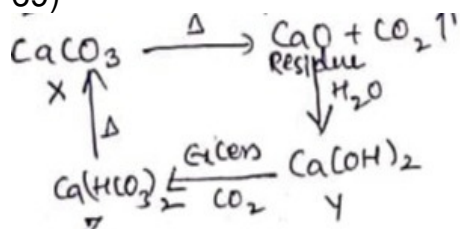 CaCO3 Δ CaO + CO2 ↑
X Δ Residue H2O
Ca(HCO3)2 Excess CO2 Ca(OH)2
Z Y